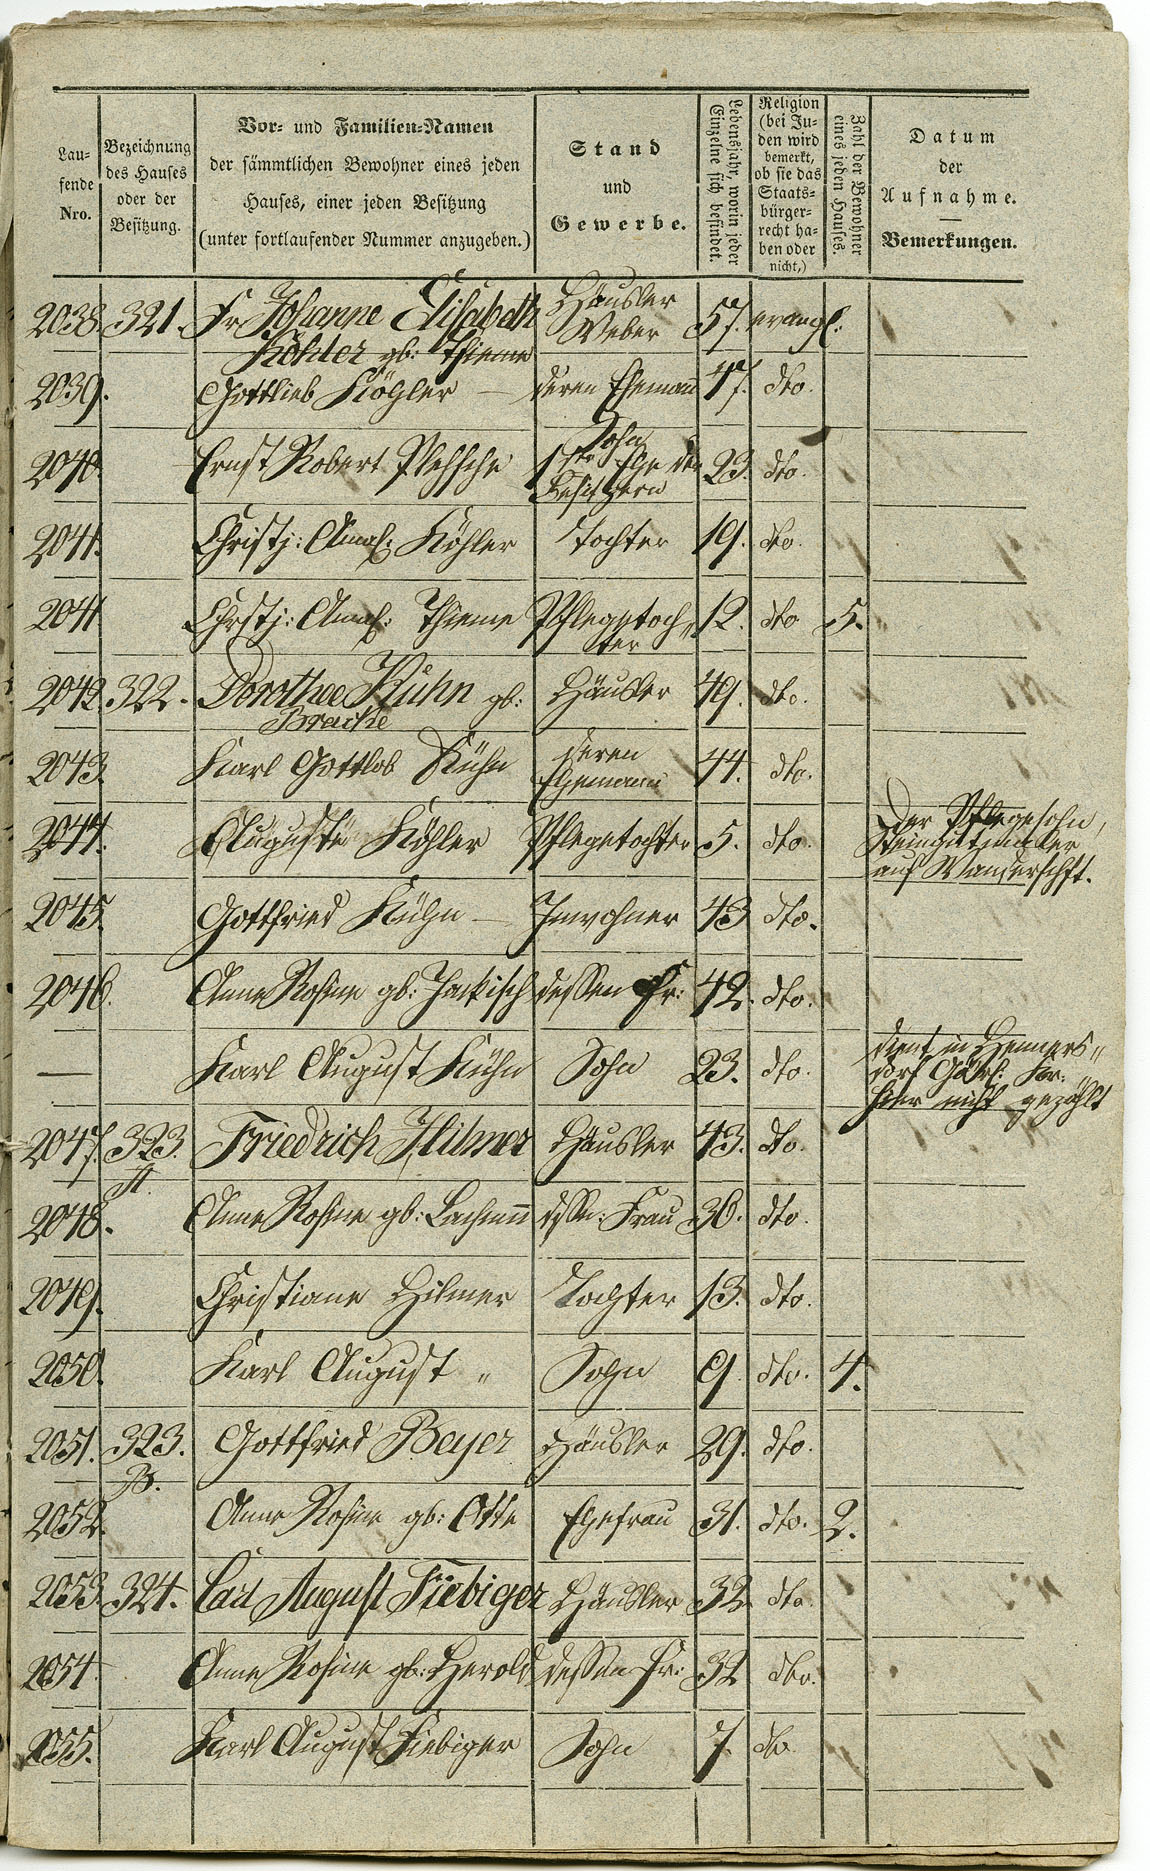 Lau-
fende
Nro.
Bezeichnung
des Hauses
oder der
Besitzung.
Vor- und Familien-Namen
der sämmtlichen Bewohner eines jeden
Hauses, einer jeden Besitzung
(unter fortlaufender Nummer anzugeben.)
Stand
und
Gewerbe.
Lebensjahr, worin jeder
Einzelne sich befindet.
Religion
(bei Ju-
den wird
bemerkt,
ob sie das
Staats-
bürger-
recht ha-
ben oder
nicht,)
Zahl der Bewohner
eines jeden Hauses.
Datum
der
Aufnahme.
Bemerkungen.
2038. 321. Fr Johanne Elisabeth Häusler Weber 57. evangl:
Köhler gb: Thieme
2039. Gottlieb Köhler deren Ehemañ 47. dto.
2040. Ernst Robert Sohn 1ster Ehe der Besitzern 23. dto.
2041. Christj: Amal: Köhler Tochter 19. dto.
2041 Chrstj: Amal: Thieme Pflegetoch„ter 12. dto 5.
2042. 322. Dorothee Kühn gb: Häusler 49. dto.
Bracke
2043. Karl Gottlob Kühn deren Ehemann 44. dto.
2044. Auguste Köhler Pflegetochter 5. dto. Der Pflegesohn,
auf Wanderschft.
2045. Gottfried Kühn — Inwohner 43 dto.
2046. Anne Rosine gb: Jackisch dessen Fr: 42. dto.
— Karl August Kühn Sohn 23. dto. dient in Henners„
dorf Görl:
hier nicht gezählt
2047. 323. Friedrich Hilmer Häusler 43. dto.
A.
2048. Anne Rosine gb: Lachmñ dssn: Frau 36. dto.
2049. Christiane Hilmer Tochter 13. dto.
2050. Karl August „ Sohn 9. dto. 4.
2051. 323. Gottfried Beyer Häusler 29. dto.
B.
2052. Anne Rosine gb: Otte Ehefrau 31. dto. 2.
2053. 324. Carl August Fiebiger Häusler 32. dto.
2054. Anne Rosine gb: Herold dessen Fr: 32 dto.
2055. Karl August Fiebiger Sohn 7. dto.